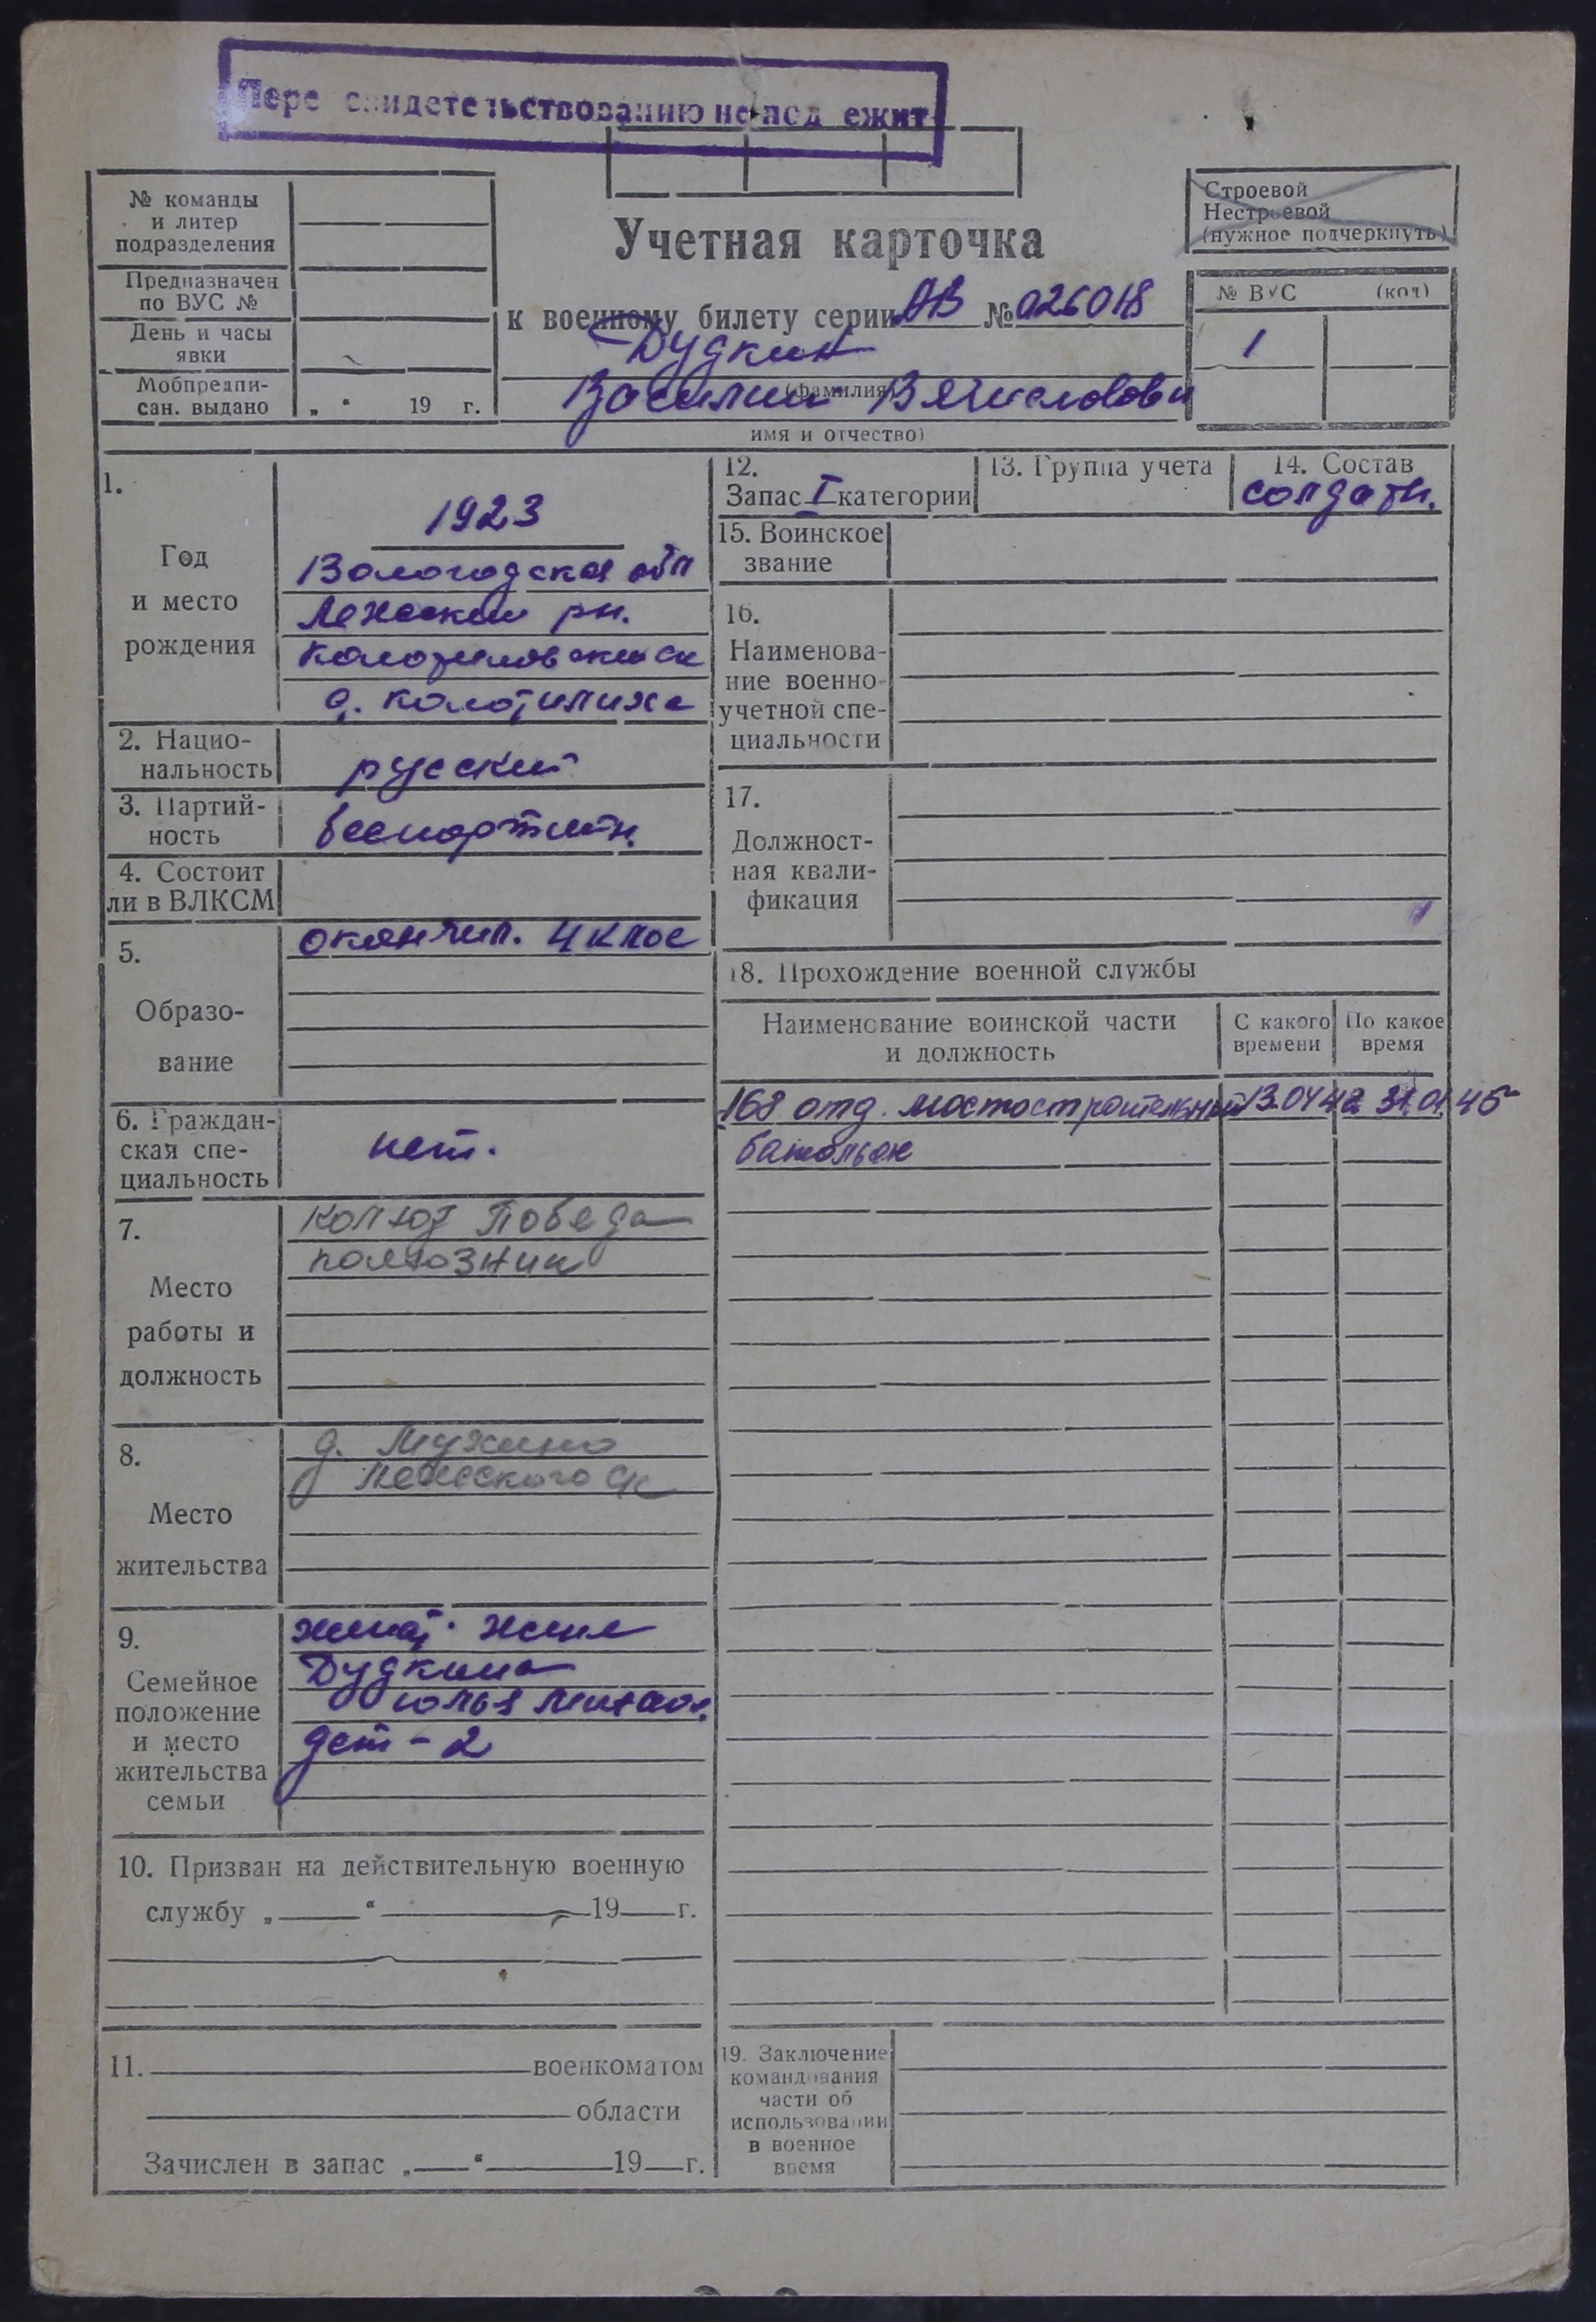 Пере свидетельствованию не под ежит
№ команды
и литер
подразделения
Предназначен
по ВУС №
День и часы
явки
Мобпредпи-
сан. выдано „ “ 19 г.
Строевой
Нестроевой
(нужное подчеркнуть)
Учетная карточка
к военному билету серии АВ №
Дудкин
(фамилия)
Василий Вячеславови
имя и отчество)
№ ВУС (код)
1
1.
Год
и место
рождения
1923
Вологодская обл
Лежский рн.
Колотиловский ск
д. Колотилиха
2. Нацио-
нальность
русский
3. Партий-
ность
беспартийн.
4. Состоит
ли в ВЛКСМ
5.
Образо-
вание
окончил. 4 клас
6. Граждан-
ская спе-
циальность
нет.
7.
Место
работы и
должность
колхоз Победа
колхозник
8.
Место
жительства
д. Мухино
9.
Семейное
положение
и место
жительства
семьи
женат. жена
Дудкина
юлья Михаил.
дет - 2
10. Призван на действительную военную
службу „ “ 19 г.
11. военкоматом
области
Зачислен в запас „ “ 19 г.
12.
Запас I категории
13. Группа учета
14. Состав
солдатн.
15. Воинское
звание
16.
Наименова-
ние военно-
учетной спе-
циальности
17.
Должност-
ная квали-
фикация
18. Прохождение военной службы
Наименование воинской части
и должность
С какого
времени
По какое
время
168 отд. мостостроительный 13.04 42 31.01.45
батольон
19. Заключение
командования
части об
использовании
в военное
время